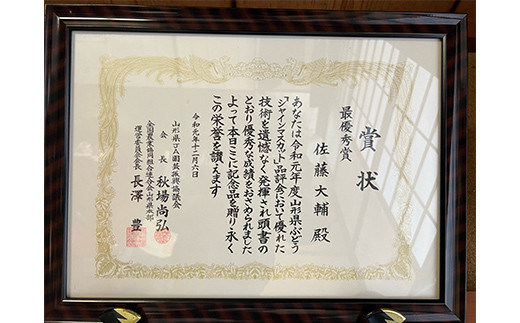 賞状
最優秀賞
佐藤大輔 殿
あなたは令和元年度山形県ぶどう
「シャインマスカット」品評会において優れた
技術を遺憾なく発揮され頭書の
とおり優秀な成績をおさめられました
よって本日ここに記念品を贈り永く
この栄誉を讃えます
令和元年十二月六日
山形県JA園芸振興協議会
会長 秋場尚弘
全国農業協同組合連合会山形県本部
運営委員会会長 長澤豊